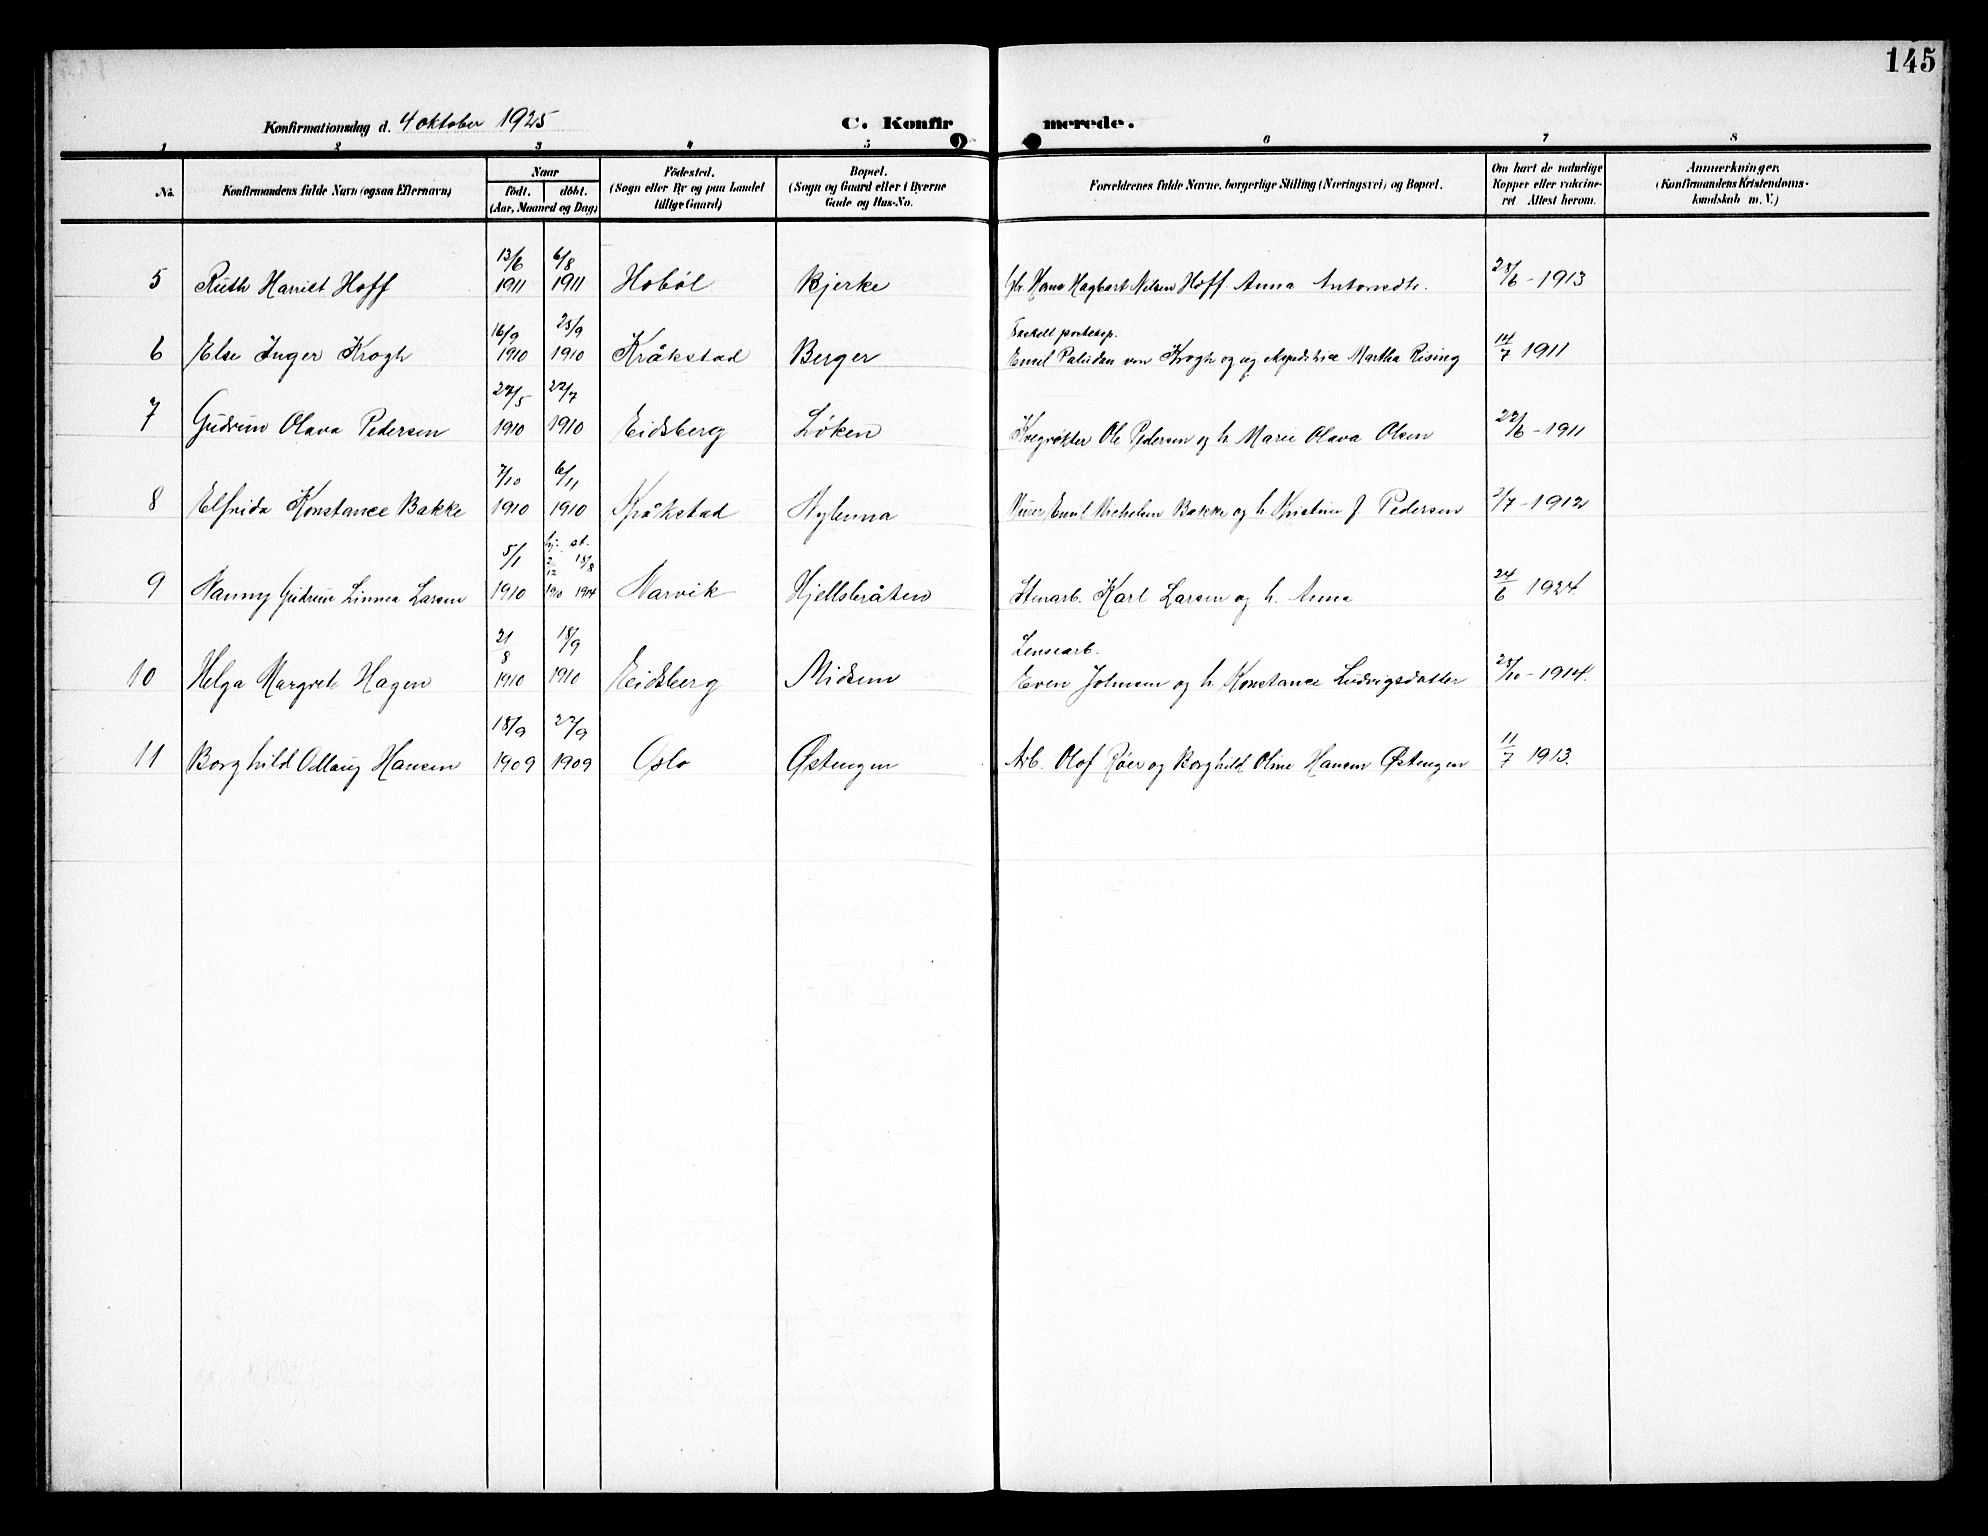 145
Konfirmationsdag d. 4 oktober 1925 C. Konfir merede.
1 2 3 4 5 6 7 8
No. Konfirmandens fulde Navn (ogsaa Efternavn)
Naar
födt. döbt.
(Aar, Maaned og Dag)
Födested.
(Sogn eller By og paa Landet
tillige Gaard)
Bopæl.
(Sogn og Gaard eller i Byerne
Gade og Hus-No.
Forældrenes fulde Navne, borgerlige Stilling (Næringsvei) og Bopæl.
Om havt de naturlige
Kopper eller vakcine-
ret Attest herom.
Anmærkninger.
(Konfirmandens Kristendoms-
kundskab m. V.)
13/6 6/8
5 Ruth Harriet Hoff 1911 1911 Hobøl Bjerke Hans Hagbart Nilsen Hoff Anna Antonsdtr. 28/6 - 1913
16/9 25/9
6 Else Inger Krogh 1910 1910 Kråkstad Berger Emil Paludan von Krogh og Martha Rising 14/7 1911
27/5 27/7
7 Gudrun Olava Pedersen 1910 1910 Eidsberg Løken Ole Pedersen og h. Marie Olava Olsen 22/6 - 1911
7/10 6/11
8 Elfrida Konstance Bakke 1910 1910 Kråkstad Nylenna Emil Bakke og h. Kristine J. Pedersen 2/7 - 1912
5/1 hj. st. 2/12 18/8
9 Nanny Gudrun Linnea Larsen 1910 1910 1914 Narvik Hjellsbråten Stenarb. Karl Larsen og h. Anna 24/6 1924.
21/8 18/9 Lensearb.
10 Helga Margrete Hagen 1910 1910 Eidsberg Midsem Even Johnsen og h. Konstance Ludvigsdatter 28/10 - 1914.
18/9 27/9
11 Borghild Odlaug Hansen 1909 1909 Oslo Østengen Arb. Olof Røer og Borghild Oline Hansen Østengen 11/7 1913.